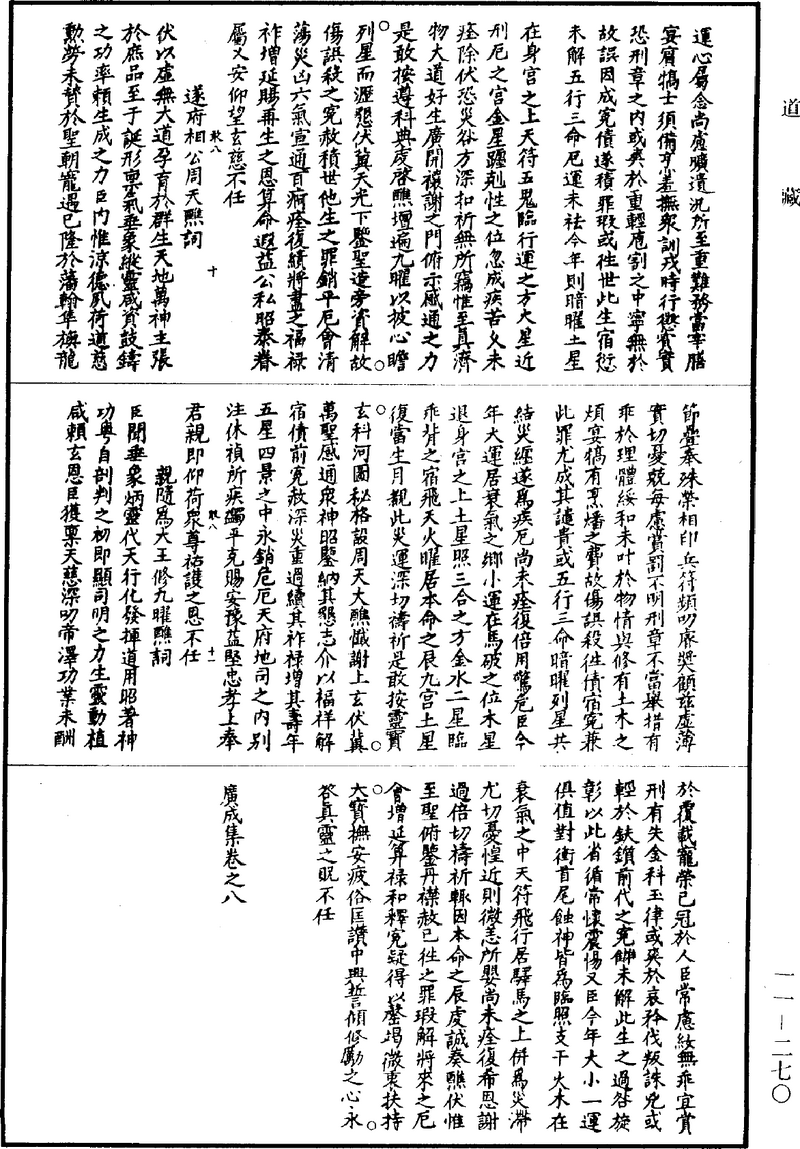 道藏
運心屬念尚慮曠遺況所至重難務當宰膳
宴賓犒士須備烹羞撫衆訓戎時行懲賞實
恐刑章之內或爽於重輕庖割之中寧無於
故誤因成寃債遂積罪瑕或徃世此生宿愆
未解五行三命厄運未袪今年則暗曜土星
在身宮之上天符五鬼臨行運之方火星近
刑厄之宮金星躔剋性之位忽成疾苦久未
痊除伏恐災咎方深扣祈無所竊惟至真濟
物大道好生廣開禳謝之門俯示感通之力
是敢按遵科典虔啓醮壇遍九曜以披心瞻
列星而瀝懇伏冀天光下鑒聖造旁資解故
傷誤殺之寃赦積世他生之罪銷平厄會清
蕩災凶六氣宣通百痾痊復續將盡之福禄
祚增延賜再生之恩算命遐益公私昭泰眷
屬乂安仰望玄慈不任
遂府相公周天醮詞
伏以虛無大道孕育於群生天地萬神主張
於庶品至于誕形稟氣垂象縱靈咸資鼓鑄
之功率賴生成之力臣內惟涼德夙荷道慈
勲勞未贊於聖朝寵遇已隆於藩翰隼旟龍
節疊忝殊榮相印兵符頻叨庥奬顧兹虛薄
實切憂兢每慮賞罰不明刑章不當舉措有
乖於理體綏和未叶於物情興修有土木之
煩宴犒有烹燔之費故傷誤殺徃債宿寃兼
此罪尤成其譴責或五行三命暗曜列星共
結災纏遂爲疾厄尚未痊復倍用驚危臣今
年大運居衰氣之鄉小運在馬破之位木星
退身宮之上土星照三合之方金水二星臨
乖背之宿飛天火曜居本命之辰九宮土星
復當生月觀此災運深切禱祈是敢按靈寶
玄科河圖秘格設周天大醮懺謝上玄伏冀
萬聖感通衆神昭鑒納其懇志介以福祥解
宿債前寃赦深災重過續其祚禄增其壽年
五星四景之中永銷危厄天府地司之內別
注休禎所疾蠲平克賜安豫益堅忠孝上奉
君親即仰荷衆尊祐護之恩不任
親隨爲大王修九曜醮詞
臣聞垂象炳靈代天行化發揮道用昭著神
功粤自剖判之初即顯司明之力生靈動植
咸賴玄恩臣獲稟天慈深叨帝澤功業未酬
於覆載寵榮已冠於人臣常慮紋無乖宜賞
刑有失金科玉律或爽於哀矜伐叛誅兇或
輕於鈇鑕前代之寃讎未解此生之過咎旋
彰以此省循常懷震惕又臣今年大小一運
俱值對衝首尾蝕神皆爲臨照支干火木在
衰氣之中天符飛行居驛馬之上併爲災滯
尤切憂惶近則微恙所嬰尚未痊復希恩謝
過倍切禱祈輒因本命之辰虔誠奏醮伏惟
至聖俯鑒丹襟赦已徃之罪瑕解將來之厄
會增延算禄和釋寃疑得以罄竭微衷扶持
大寶撫安疲俗匡讚中興誓傾修勵之心永
荅真靈之貺不任
廣成集卷之八
一一—二七〇